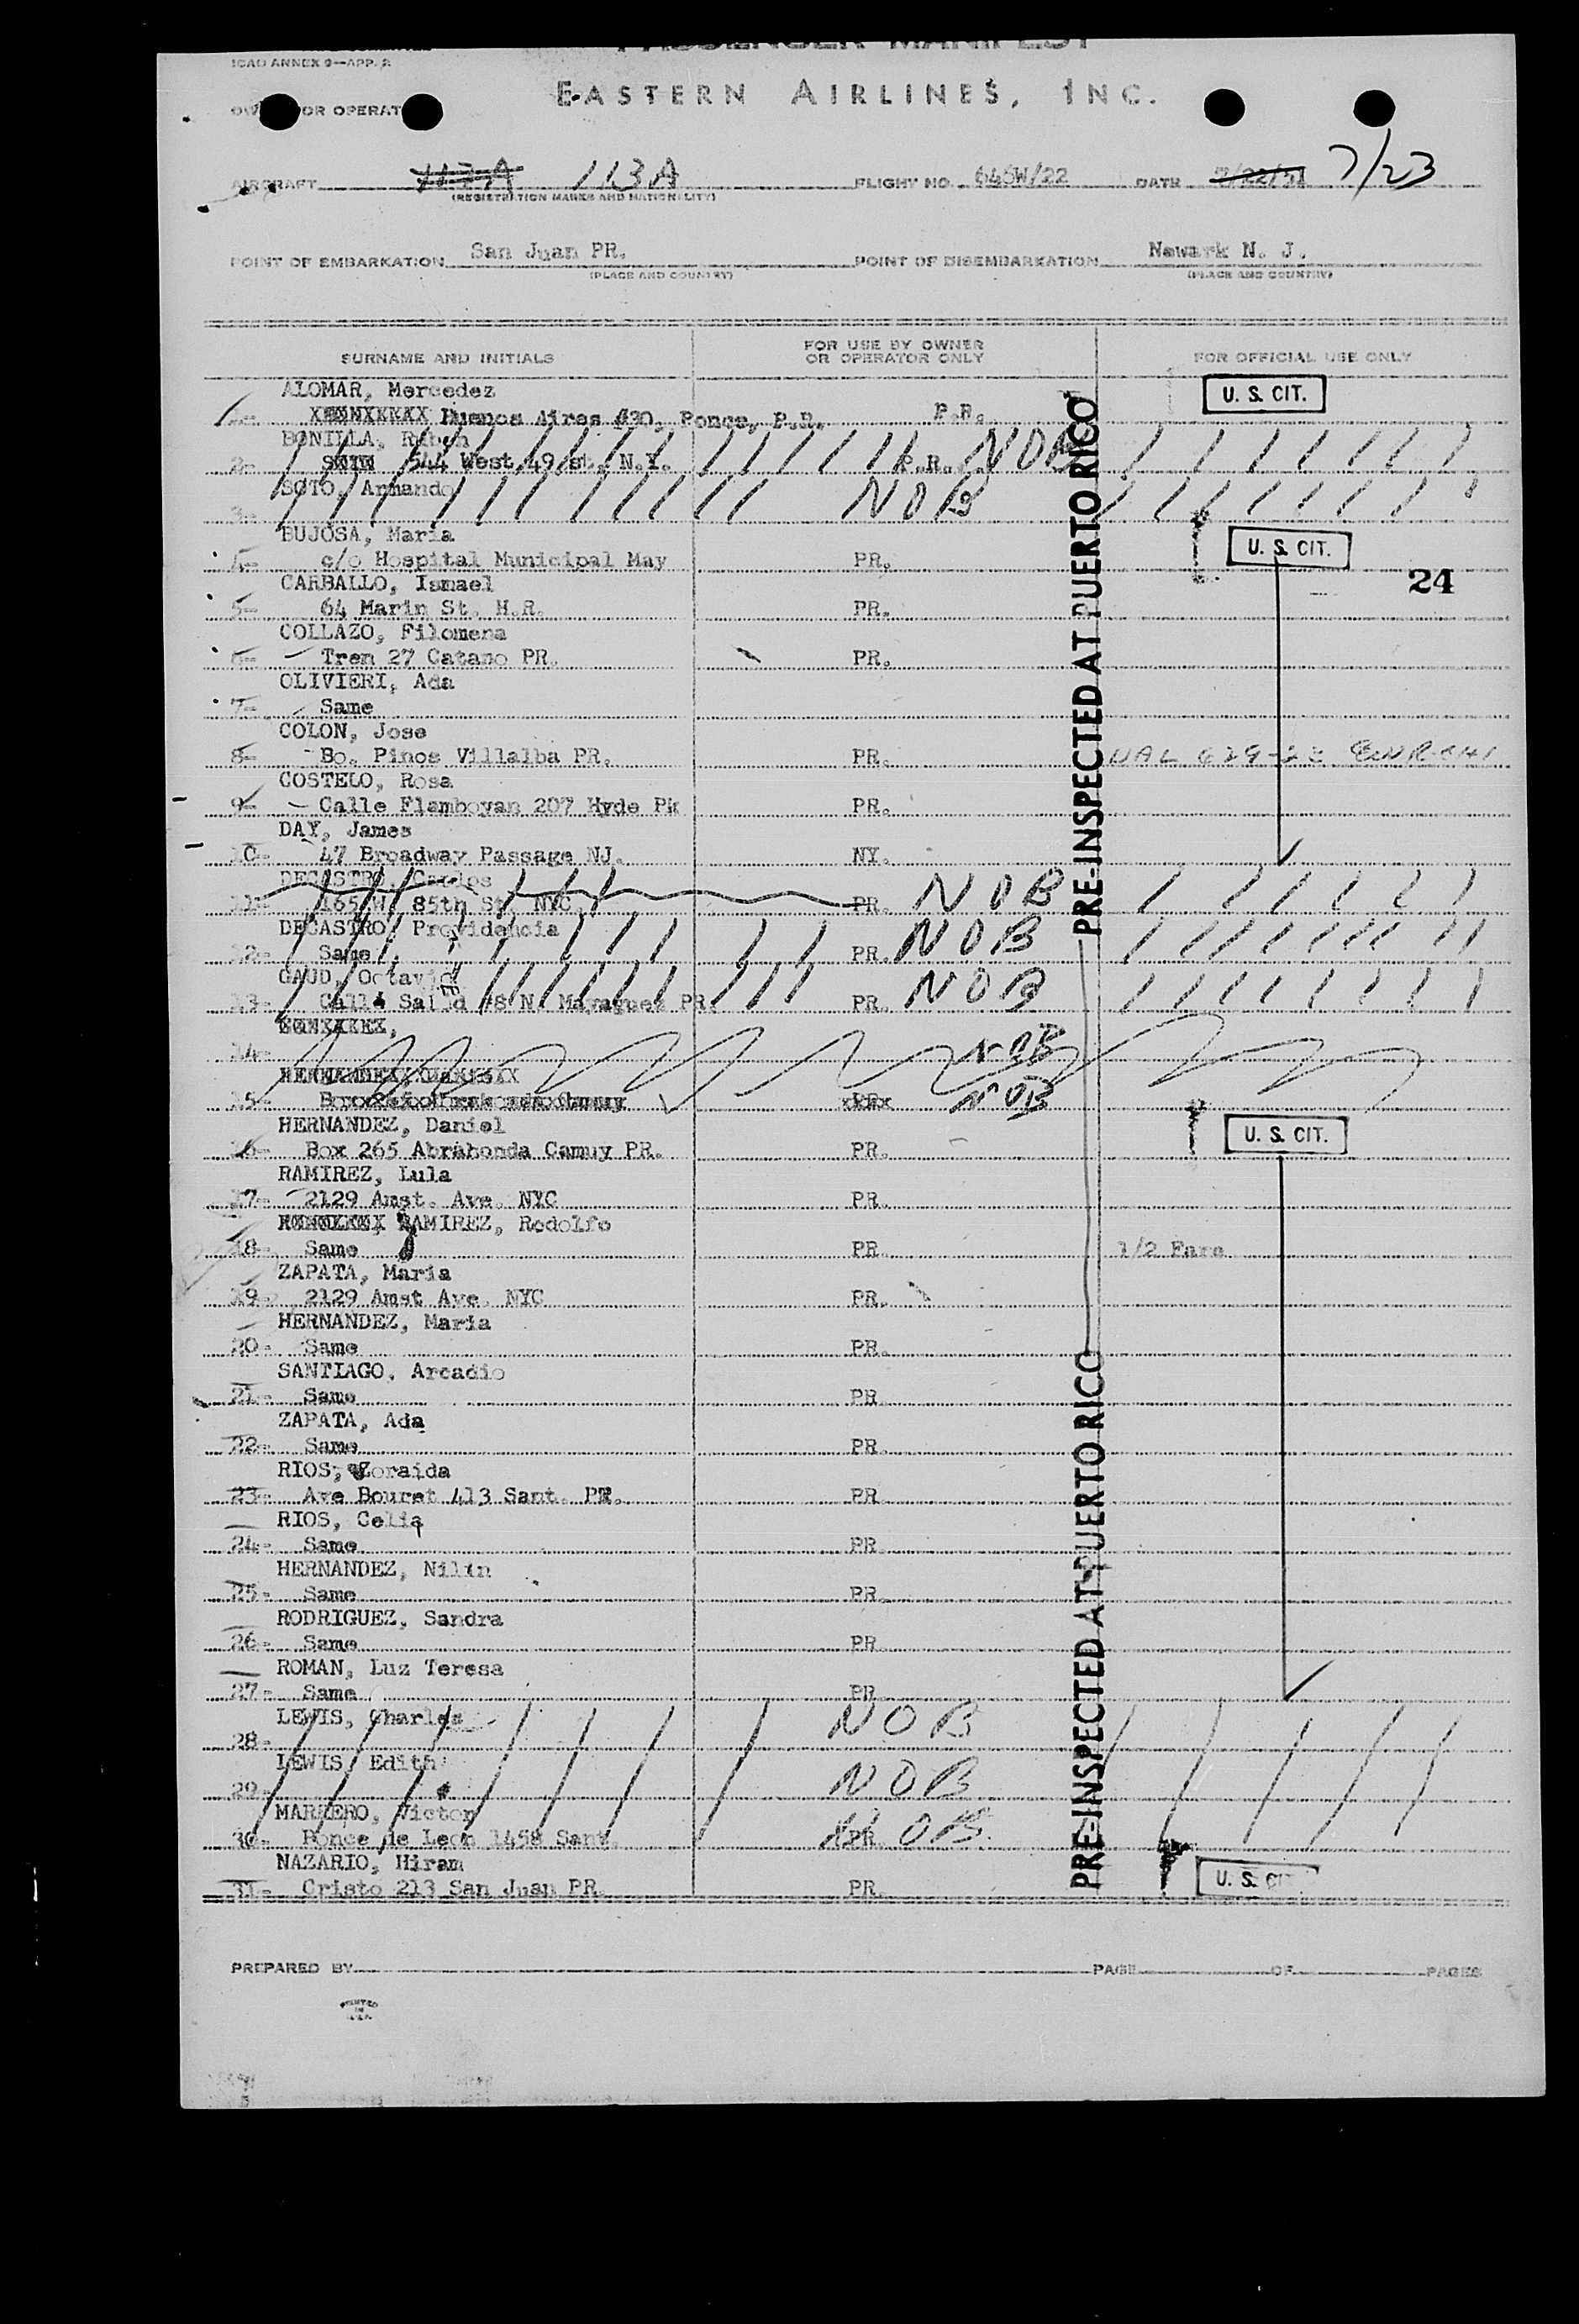 PASSENGER MANIFEST
ICAO ANNEX 9—APP. 
EASTERN AIRLINES, INC.
OR OPERAT
AIRCRAFT 117A 113A FLIGHT NO. 645W/22 DATE 7/22/51 7/23
(REGISTRATION MARKS AND NATIONALITY)
POINT OF EMBARKATION San Juan PR. POINT OF DISEMBARKATION Newark N. J.
(PLACE AND COUNTRY) (PLACE AND COUNTRY)
SURNAME AND INITIALS FOR USE BY OWNER OR OPERATOR ONLY FOR OFFICIAL USE ONLY
ALOMAR, Mercedez U. S. CIT.
1- Buenos Aires #30, Ponce, P.R. P.R.
BONILLA, Ruben
2- 544 West 49 st. N.Y. P.R. NOB
SOTO, Armando
3- NOB
BUJOSA, Maria U. S. CIT.
4- c/o Hospital Municipal May PR.
CARBALLO, Ismael 24
5- 64 Marin St. H.R. PR.
COLLAZO, Filomena
6- Tren 27 Catano PR. PR.
OLIVIERI, Ada
7- Same
COLON, Jose
8- Bo. Pinos Villalba PR. PR.
COSTELO, Rosa
9- Calle Flamboyan 207 Hyde Pk PR.
DAY, James
10- 47 Broadway Passage NJ. NY.
DECASTRO, Carlos
11- 165 W. 85th St. NYC PR. NOB
DECASTRO, Providencia
12- Same PR. NOB
GAUD, Octavio
13- Calle Salud #8 N. Mayaguez PR PR. NOB
14- NOB
15- NOB
HERNANDEZ, Daniel U. S. CIT.
16- Box 265 Abrahonda Camuy PR. PR.
RAMIREZ, Lula
17- 2129 Amst. Ave. NYC PR.
RAMIREZ, Rodolfo
18- Same PR. 1/2 Fare
ZAPATA, Maria
19- 2129 Amst Ave. NYC PR.
HERNANDEZ, Maria
20- Same PR.
SANTIAGO, Arcadio
21- Same PR.
ZAPATA, Ada
22- Same PR.
RIOS, Zoraida
23- Ave Bouret 413 Sant. PR. PR.
RIOS, Celia
24- Same PR.
HERNANDEZ, Nilin
25- Same PR.
RODRIGUEZ, Sandra
26- Same PR.
ROMAN, Luz Teresa
27- Same PR.
LEWIS, Charles NOB
28-
LEWIS, Edith NOB
29-
MARRERO, Victor
30- Ponce de Leon 1458 Sant. PR. NOB
NAZARIO, Hiram U. S. CIT
31- Cristo 213 San Juan PR. PR.
PRE-INSPECTED AT PUERTO RICO
PRE-INSPECTED AT PUERTO RICO
PREPARED BY PAGE OF PAGES
PRINTED
IN
U.S.A.